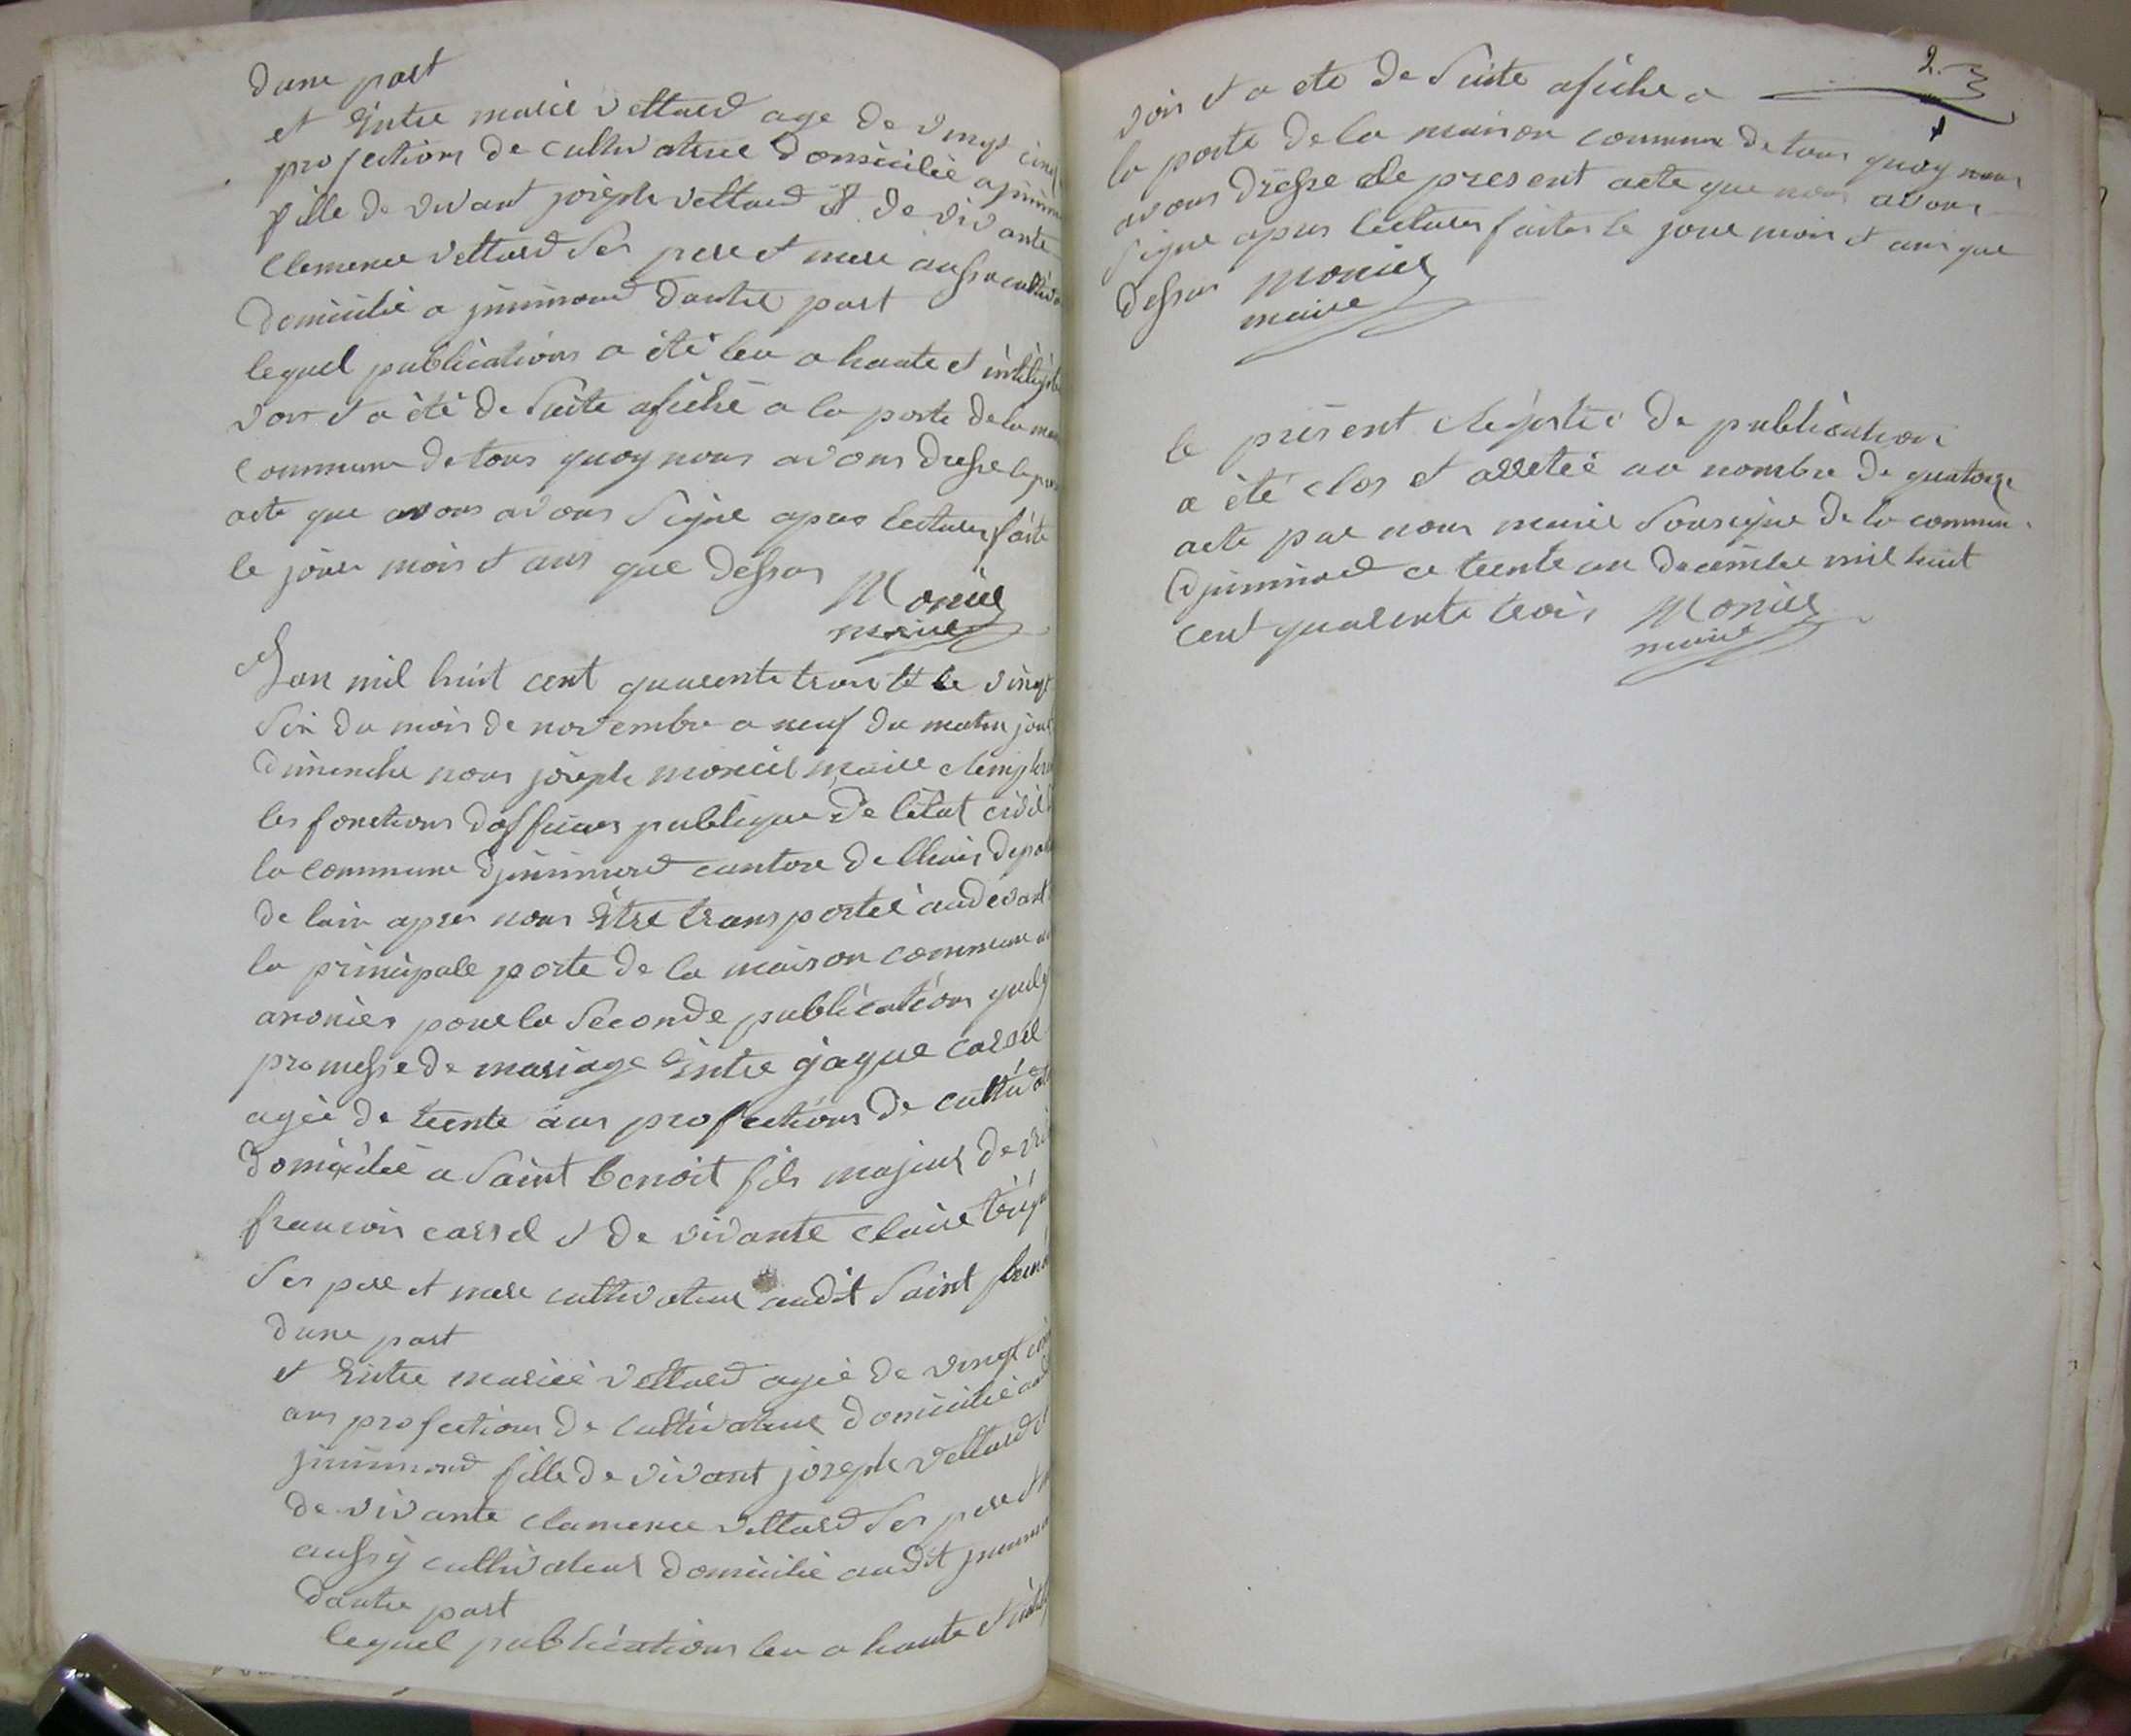 dune part
et Entre marie vettard age de vingt cinq
profections de cultivateur domicilié a
fille de vivant joseph vettard et de vivante
Clemence vettard Ses pere et mere aussi
domicilié a jnnimond dautre part
lequel publications a été leu a haute et
voix et a été de Suite afiché a la porte de la
commune de tous quoy nous avons dressé le
acte que nous avons Signé apres lectures faite
le jour mois et ans que dessus
Monier
maire
Lan mil huit cent quarente trois et le vingt
Six du mois de novembre a neuf du matin jour
dimenche nous joseph monier maire
les fonctions dofficier publique de létat civil
la commune djnnimond canton de lhuis
de lain apres nous Être transportée audevant
la principale porte de la maison commune
anonier pour la Seconde publications quil y
promesse de mariage Entre jaque carrel
agée de trente ans profections de
domicilié a Saint benoit fils majeur de
francois carrel et de vivante claire
Ses pere et mere cultivateur audit Saint
dune part
et Entre mariée vettard agée de vingt
ans profections de cultivateur domicilié
jnnimond fille de vivant joseph vettard et
de vivante clamence vettard Ses pere et
aussy cultivateur domicilié audit
dautre part
lequel publications leu a haute et
2
voix et a ete de Suite afiche a
la porte de la maison commune de tous quoy nous
avons dressé le present acte que nous avons
Signe apres lectures faites le jour mois et ans que
dessus Monier
maire
le présent Régistré de publication
a été clos et arretée au nombre de quatorze
acte par nous maire Sousigné de la commune
djnnimond ce trente un decembre mil huit
cent quarente trois Monier
maire